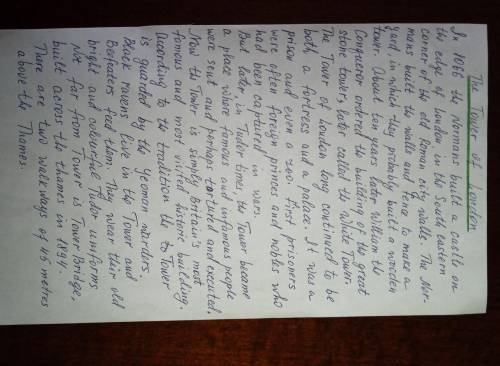 The Tower of London
In 1066 the Normans built a castle on
the edge of London in the South eastern
corner of the old Roman city walls. The Nor-
mans built the walls and fence to make a
yard, in which they probably built a wooden
tower. About ten years later William the
Conqueror ordered the building of the great
stone tower, later called the White Tower.
The Tower of London long continued to be
both a fortress and a palace. It was a
prison and even a zoo. First prisoners
were often foreign princes and nobles who
had been captured in wars.
But later in Tudor times the Tower became
a place where famous and infamous people
were sent and perhaps tortured and executed.
Now the Tower is simply Britain's most
famous and most visited historic building.
According to the tradition the Tower
is guarded by the Yeoman warders.
Black ravens live in the Tower and
Beefeaters feed them. They wear their old
bright and colourful Tudor uniforms
Not far from Tower is Tower Bridge,
built across the thames in 1894.
There are two walkways of 45 metres
above the Thames.